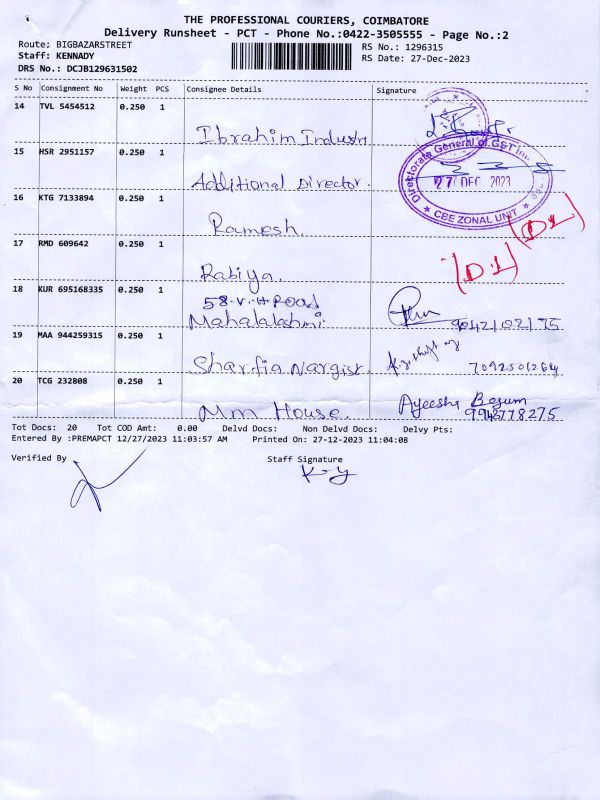 THE PROFESSIONAL COURIERS, COIMBATORE
Delivery Runsheet - PCT - Phone No.:0422-3505555 - Page No.:2
Route: BIGBAZARSTREET RS No.: 1296315
Staff: KENNADY RS Date: 27-Dec-2023
DRS No.: DCJB129631502
S No Consignment No Weight PCS Consignee Details Signature
14 TVL 5454512 0.250 1
Ibrahim Industri
15 HSR 2951157 0.250 1
Directorate General of GST
Additional Director. 27 DEC 2023
CBE ZONAL UNIT
16 KTG 7133894 0.250 1
Ramesh. (D1)
17 RMD 609642 0.250 1
Rabiya. (D1)
58-V.H.Road
18 KUR 695168335 0.250 1
Mahalakshmi
19 MAA 944259315 0.250 1
Sharfia Nargist. 7092501264
20 TCG 232808 0.250 1 Ayeesha Begum
Mm House. 9942778275
Tot Docs: 20 Tot COD Amt: 0.00 Delvd Docs: Non Delvd Docs: Delvy Pts:
Entered By :PREMAPCT 12/27/2023 11:03:57 AM Printed On: 27-12-2023 11:04:08
Verified By Staff Signature